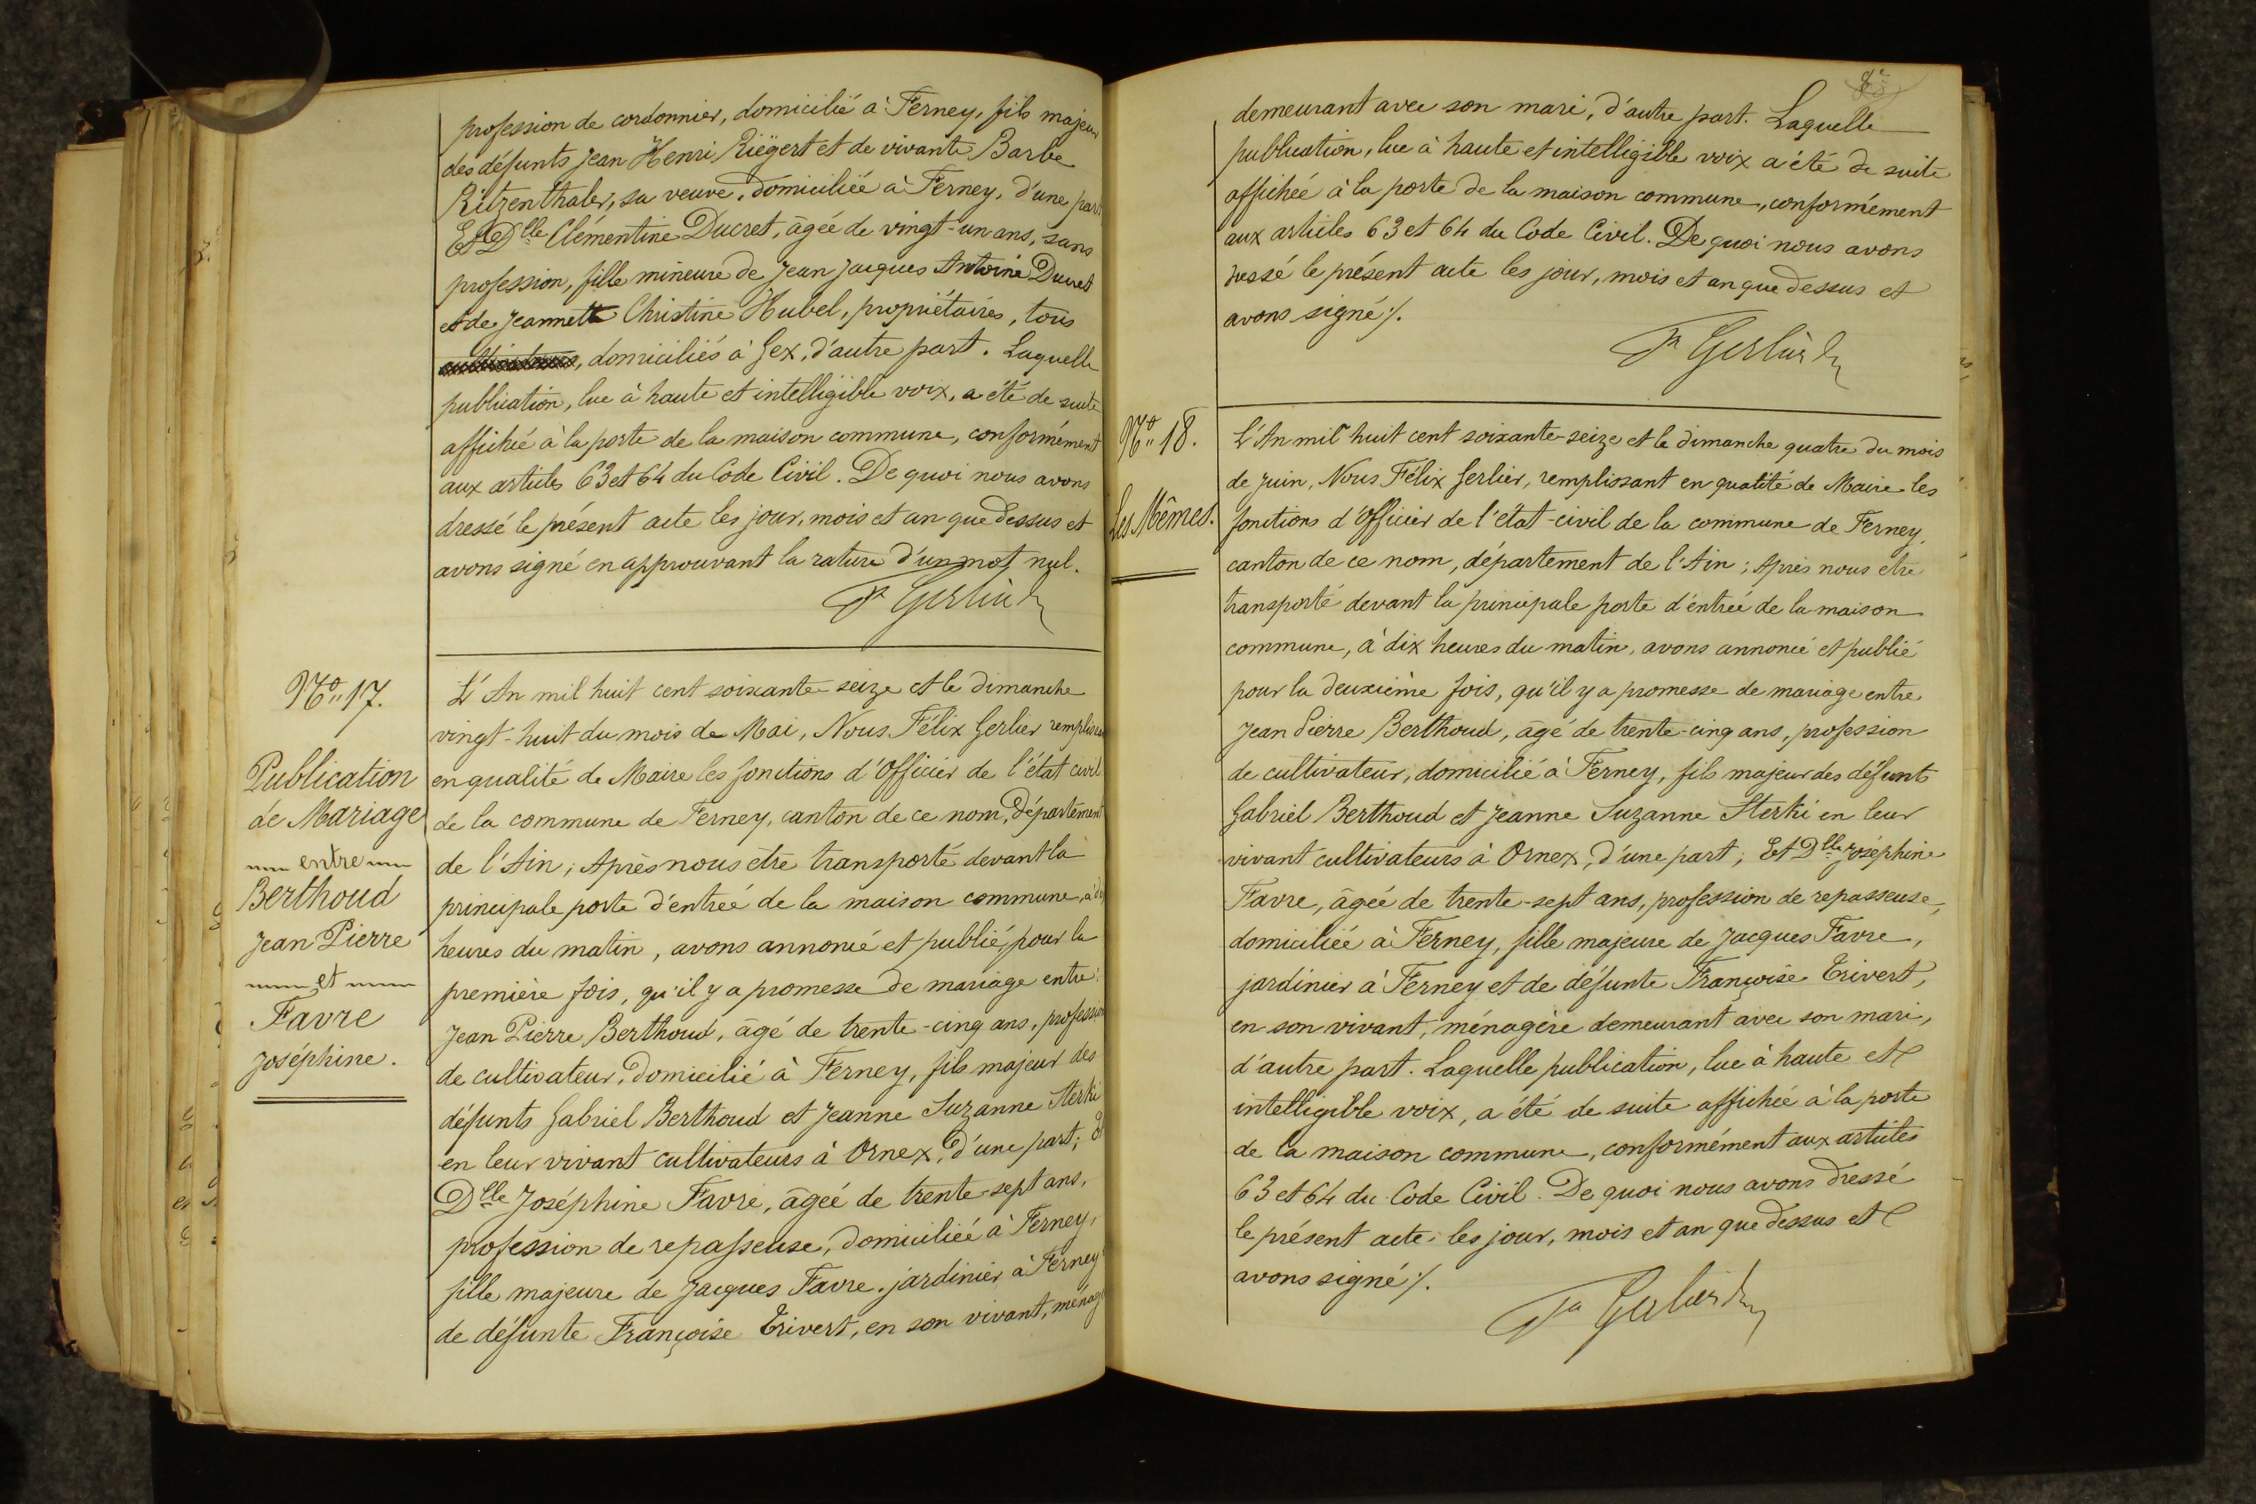 profession de cordonnier, domicilié à Ferney, fils majeur
des défunts Jean Henri Riëgert et de vivante Barbe
Ritzenthaler, sa veuve, domiciliée à Ferney, d'une part
Et Dlle Clémentine Ducret, âgée de vingt-un ans, sans
profession, fille mineure de Jean Jacques Antoine Ducret
et de Jeannette Christine Hubel, propriétaires, tous
domiciliés à Gex, d'autre part. Laquelle
publication, lue à haute et intelligible voix, a été de suite
affichée à la porte de la maison commune, conformément
aux articles 63 et 64 du Code Civil. De quoi nous avons
dressé le présent acte les jour, mois et an que dessus et
avons signé en approuvant la rature d'un mot nul.
Fx Gerlier
No 17.
Publication
de Mariage
entre
Berthoud
Jean Pierre
et
Favre
Joséphine.
L'An mil huit cent soixante-seize et le dimanche
vingt-huit du mois de Mai, Nous Félix Gerlier remplissant
en qualité de Maire les fonctions d'Officier de l'état civil
de la commune de Ferney, canton de ce nom, Département
de l'Ain; Après nous être transporté devant la
principale porte d'entrée de la maison commune, à dix
heures du matin, avons annoncé et publié, pour la
première fois, qu'il y a promesse de mariage entre:
Jean Pierre Berthoud, âgé de trente-cinq ans, profession
de cultivateur, domicilié à Ferney, fils majeur des
défunts Gabriel Berthoud et Jeanne Suzanne Sterki
en leur vivant cultivateurs à Ornex, d'une part;
Dlle Joséphine Favre, âgée de trente-sept ans,
profession de repasseuse, domiciliée à Ferney,
fille majeure de Jacques Favre, jardinier à Ferney
de défunte Françoise Trivert, en son vivant, ménag
demeurant avec son mari, d'autre part. Laquelle
publication, lue à haute et intelligible voix a été de suite
affichée à la porte de la maison commune, conformément
aux articles 63 et 64 du Code Civil. De quoi nous avons
dressé le présent acte les jour, mois et an que dessus et
avons signé ./.
Fx Gerlier
No 18.
Les Mêmes.
L'An mil huit cent soixante-seize et le dimanche quatre du mois
de Juin, Nous Félix Gerlier, remplissant en qualité de Maire les
fonctions d'Officier de l'état-civil de la commune de Ferney,
canton de ce nom, département de l'Ain; Après nous être
transporté devant la principale porte d'entrée de la maison
commune, à dix heures du matin, avons annoncé et publié
pour la deuxième fois, qu'il y a promesse de mariage entre
Jean Pierre Berthoud, âgé de trente-cinq ans, profession
de cultivateur, domicilié à Ferney, fils majeur des défunts
Gabriel Berthoud et Jeanne Suzanne Sterki en leur
vivant cultivateurs à Ornex, d'une part; Et Dlle Joséphine
Favre, âgée de trente-sept ans, profession de repasseuse,
domiciliée à Ferney, fille majeure de Jacques Favre,
jardinier à Ferney et de défunte Françoise Trivert,
en son vivant, ménagère demeurant avec son mari,
d'autre part. Laquelle publication, lue à haute et
intelligible voix, a été de suite affichée à la porte
de la maison commune, conformément aux articles
63 et 64 du Code Civil. De quoi nous avons dressé
le présent acte les jour, mois et an que dessus et
avons signé ./.
Fx Gerlier